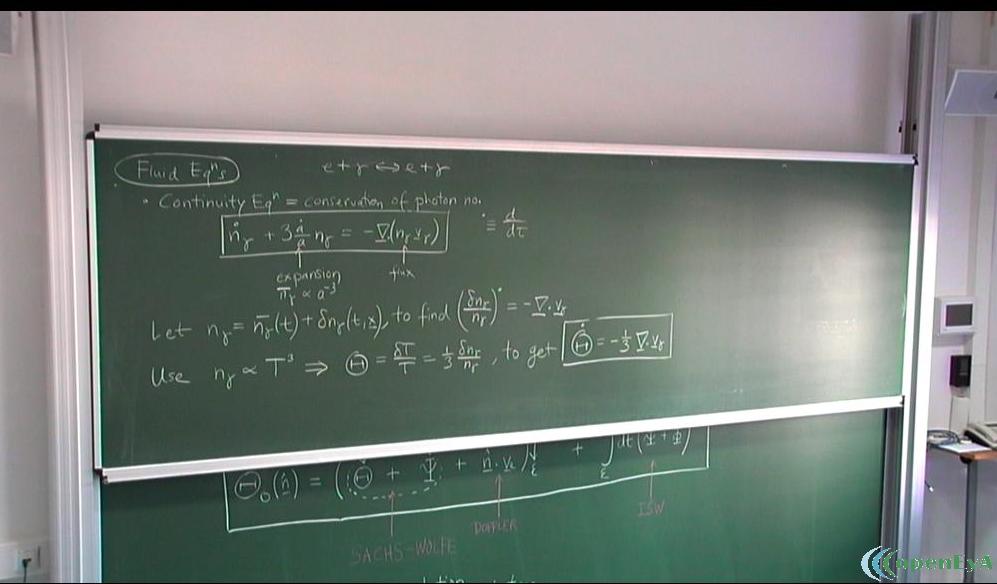 Fluid Eqⁿs e + γ ↔ e + γ
• Continuity Eqⁿ = conservation of photon no.
ṅ_γ + 3 ȧ/a n_γ = -∇·(n_γ v_γ) ˙ ≡ d/dτ
expansion flux
n̄_γ ∝ a⁻³
Let n_γ = n̄_γ(t) + δn_γ(t, x), to find (δn_γ/n_γ)˙ = -∇·v_γ
Use n_γ ∝ T³ ⇒ Θ = δT/T = 1/3 δn_γ/n_γ, to get Θ̇ = -1/3 ∇·v_γ
Θ₀(n̂) = (Θ + Ψ + n̂·v
SACHS-WOLFE DOPPLER ISW
openEyA